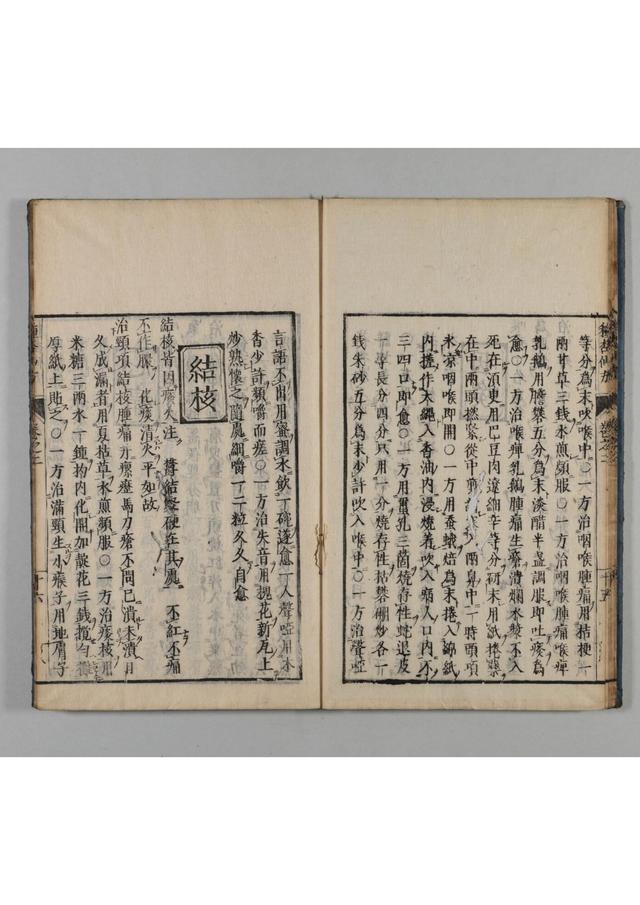 等分爲末吹喉中○一方治咽喉腫痛用桔梗一
兩甘草三錢水煎頻服○一方治咽喉腫痛喉痺
乳鵝用膽礬五分爲末淡醋半盞調服即吐痰爲
愈○一方治喉痺乳鵝腫痛生瘡潰爛水漿不入
死在須更用巴豆肉遼細辛等分研末用紙捲藥
在中兩頭撚緊從中剪 兩鼻中一時頭項
末家咽喉即開○一方用蚕蛾焙爲末捲入 紙
内撚作大繩入香油内浸燒着吹入病人口内不
三四口即愈○一方用蠶乳三箇燒存性蛇退皮
一 長分四分只用一分燒存性枯礬硼砂各一
錢朱砂五分爲末少許吹入喉中○一方治聲啞
言語不出用蜜調水飲一碗遂愈一人聲啞用木
香少許類嚼而瘥○一方治失音用槐花新瓦上
炒熟懷之隨處細嚼一二粒久久自愈
結核
結核皆因痰火注 結堅硬在其處 不紅不痛
不作膿 化痰清火平如故
治頸項結核腫痛并瘰癧馬刀瘡不問已潰未潰日
久成漏者用夏枯草水煎頻服○一方治痰核用
米糖三兩水一鍾杓内化開加靛花三錢攪勻攤
厚紙上貼之○一方治滿頸生小瘰子用地膚子